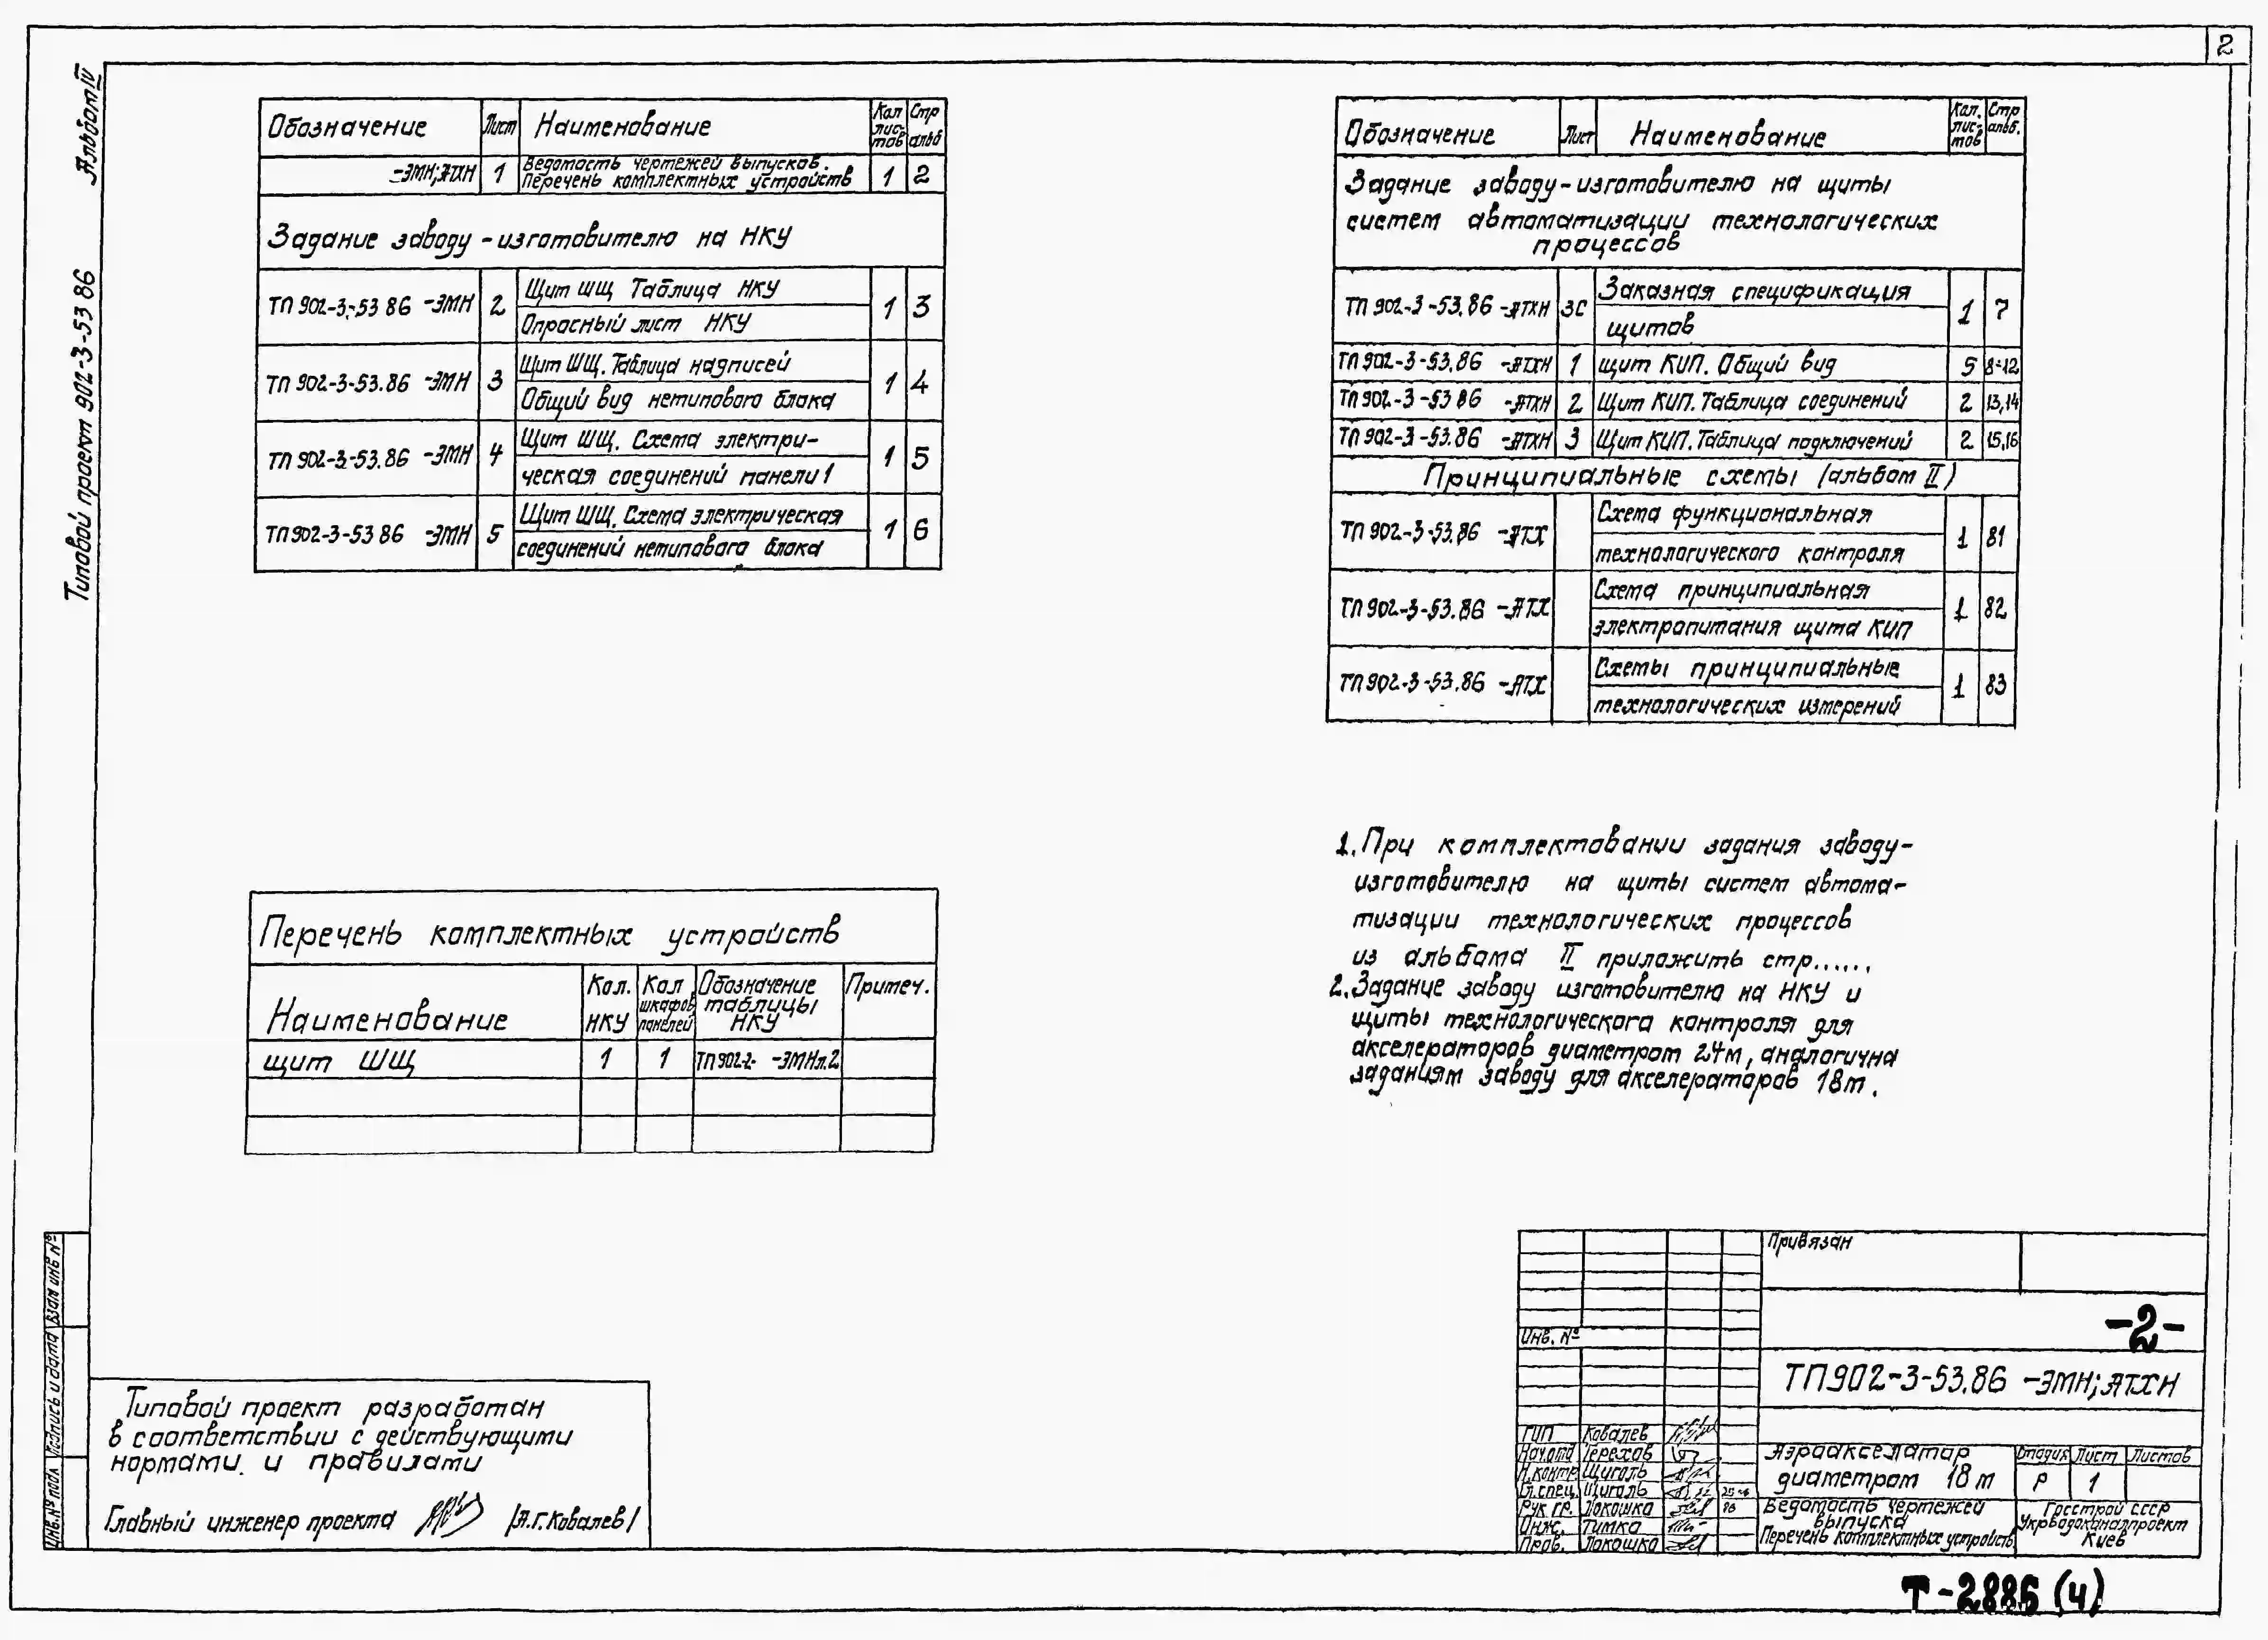 2
Альбом IV
Типовой проект 902-3-53 86
Обозначение Лист Наименование Кол лис- тов Стр альб
-ЭМН;АТХН 1 Ведомость чертежей выпусков. Перечень комплектных устройств 1 2
Задание заводу-изготовителю на НКУ
ТП 902-3-53 86 -ЭМН 2 Щит ШЩ Таблица НКУ 1 3
Опросный лист НКУ
ТП 902-3-53.86 -ЭМН 3 Щит ШЩ. Таблица надписей 1 4
Общий вид нетипового блока
ТП 902-3-53.86 -ЭМН 4 Щит ШЩ. Схема электри- 1 5
ческая соединений панели 1
ТП 902-3-53 86 -ЭМН 5 Щит ШЩ. Схема электрическая 1 6
соединений нетипового блока
Обозначение Лист Наименование Кол. лис- тов Стр альб.
Задание заводу-изготовителю на щиты
систем автоматизации технологических
процессов
ТП 902-3-53.86 -АТХН ЗС Заказная спецификация 1 7
щитов
ТП 902-3-53.86 -АТХН 1 щит КИП. Общий вид 5 8÷12
ТП 902-3-53 86 -АТХН 2 Щит КИП. Таблица соединений 2 13,14
ТП 902-3-53.86 -АТХН 3 Щит КИП. Таблица подключений 2 15,16
Принципиальные схемы (альбом II)
ТП 902-3-53.86 -АТХ Схема функциональная 1 81
технологического контроля
ТП 902-3-53.86 -АТХ Схема принципиальная 1 82
электропитания щита КИП
ТП 902-3-53.86 -АТХ Схемы принципиальные 1 83
технологических измерений
Перечень комплектных устройств
Наименование Кол. НКУ Кол шкафов, панелей Обозначение таблицы НКУ Примеч.
щит ШЩ 1 1 ТП 902-2- -ЭМНл.2
1. При комплектовании задания заводу-
изготовителю на щиты систем автома-
тизации технологических процессов
из альбома II приложить стр......
2. Задание заводу изготовителю на НКУ и
щиты технологического контроля для
акселераторов диаметром 24м, аналогична
заданиям заводу для акселераторов 18м.
Типовой проект разработан
в соответствии с действующими
нормами и правилами
Главный инженер проекта /А.Г.Ковалев/
Инв.№ подл Подпись и дата Взам инв №
Привязан
Инв. №
-2-
ТП902-3-53.86 -ЭМН;АТХН
ГИП Ковалев
Нач.отд Терехов
Н.контр Щиголь
Гл.спец. Щиголь
Рук гр. Локошко 86
Инж. Тимко
Пров. Локошко
Аэроакселатор
диаметром 18 м
Стадия Лист Листов
Р 1
Ведомость чертежей
выпуска
Перечень комплектных устройств
Госстрой СССР
Укрводоканалпроект
Киев
Т-2886 (4)